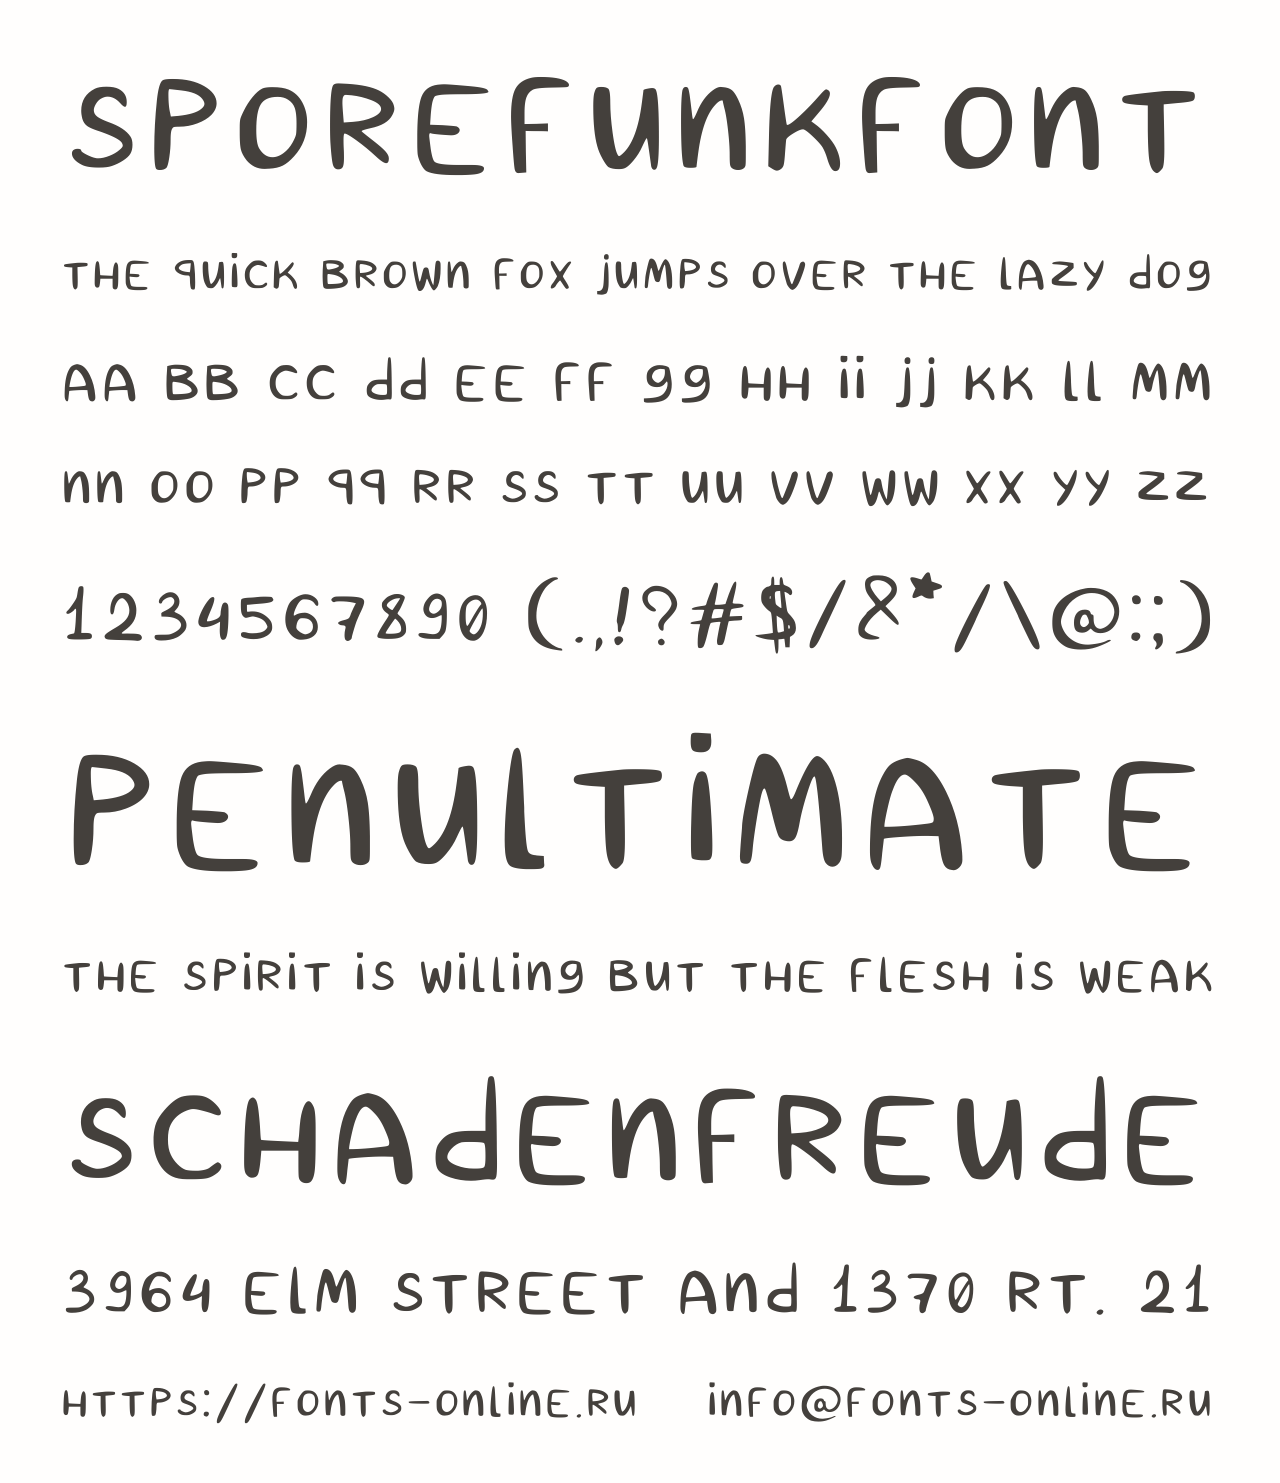 SPOREFunKFOnT
THE quiCK BROWn FOX juMPS OVER THE lAZY dOg
AA BB CC dd EE FF gg HH ii jj KK ll MM
nn OO PP qq RR SS TT uu VV WW XX YY ZZ
1234567890 (.,!?#$/&*/\@:;)
PEnulTiMATE
THE SPiRiT iS Willing BuT THE FlESH iS WEAK
SCHAdEnFREudE
3964 ElM STREET And 1370 RT. 21
HTTPS://FOnTS-OnlinE.Ru inFO@FOnTS-OnlinE.Ru